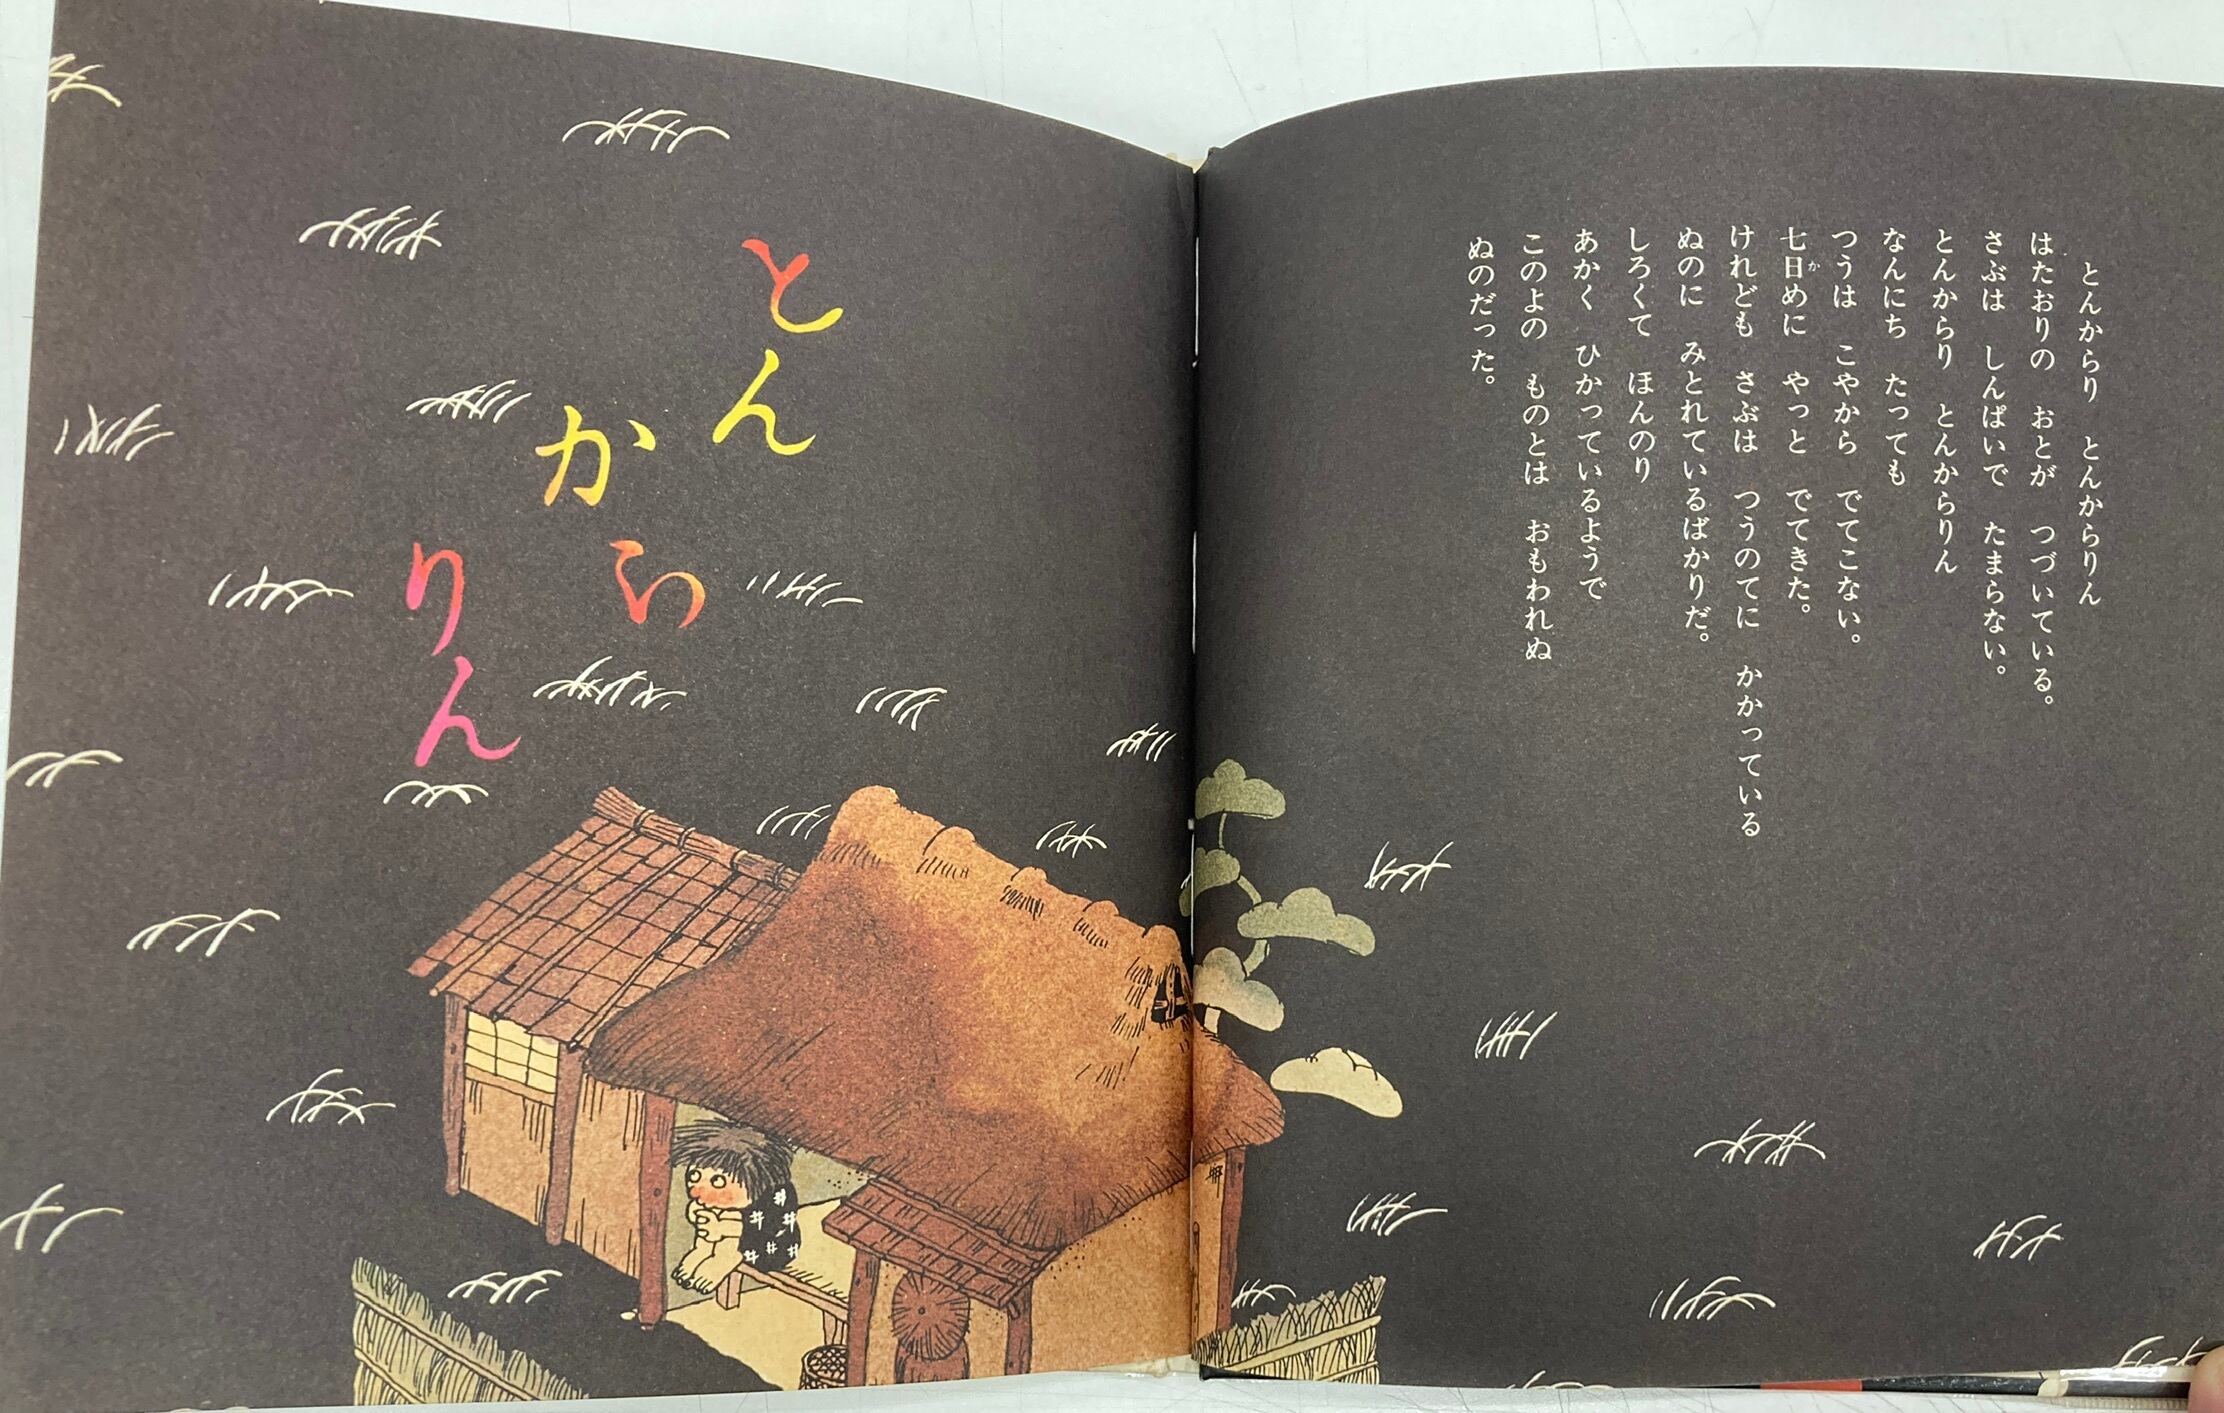 とんからりん
とんからり　とんからりん
はたおりの　おとが　つづいている。
さぶは　しんぱいで　たまらない。
とんからり　とんからりん
なんにち　たっても
つうは　こやから　でてこない。
七日めに　やっと　でてきた。
けれども　さぶは　つうのてに　かかっている
ぬのに　みとれているばかりだ。
しろくて　ほんのり
あかく　ひかっているようで
このよの　ものとは　おもわれぬ
ぬのだった。